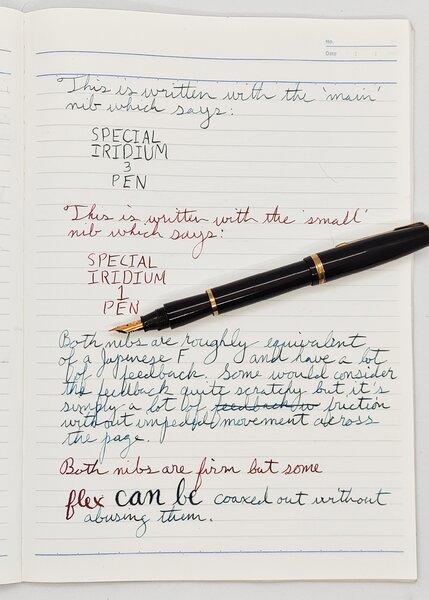 No.
Date
This is written with the 'main'
nib which says:
SPECIAL
IRIDIUM
3
PEN
This is written with the 'small'
nib which says:
SPECIAL
IRIDIUM
1
PEN
Both nibs are roughly equivalent
of a Japanese F, and have a lot
of feedback. Some would consider
the feedback quite scratchy but it's
simply a lot of feedback w friction
without impeded movement across
the page.
Both nibs are firm but some
flex can be coaxed out without
abusing them.